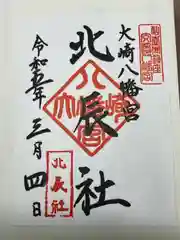 大崎八幡宮
北辰社
令和五年三月四日
八幡宮
北辰社